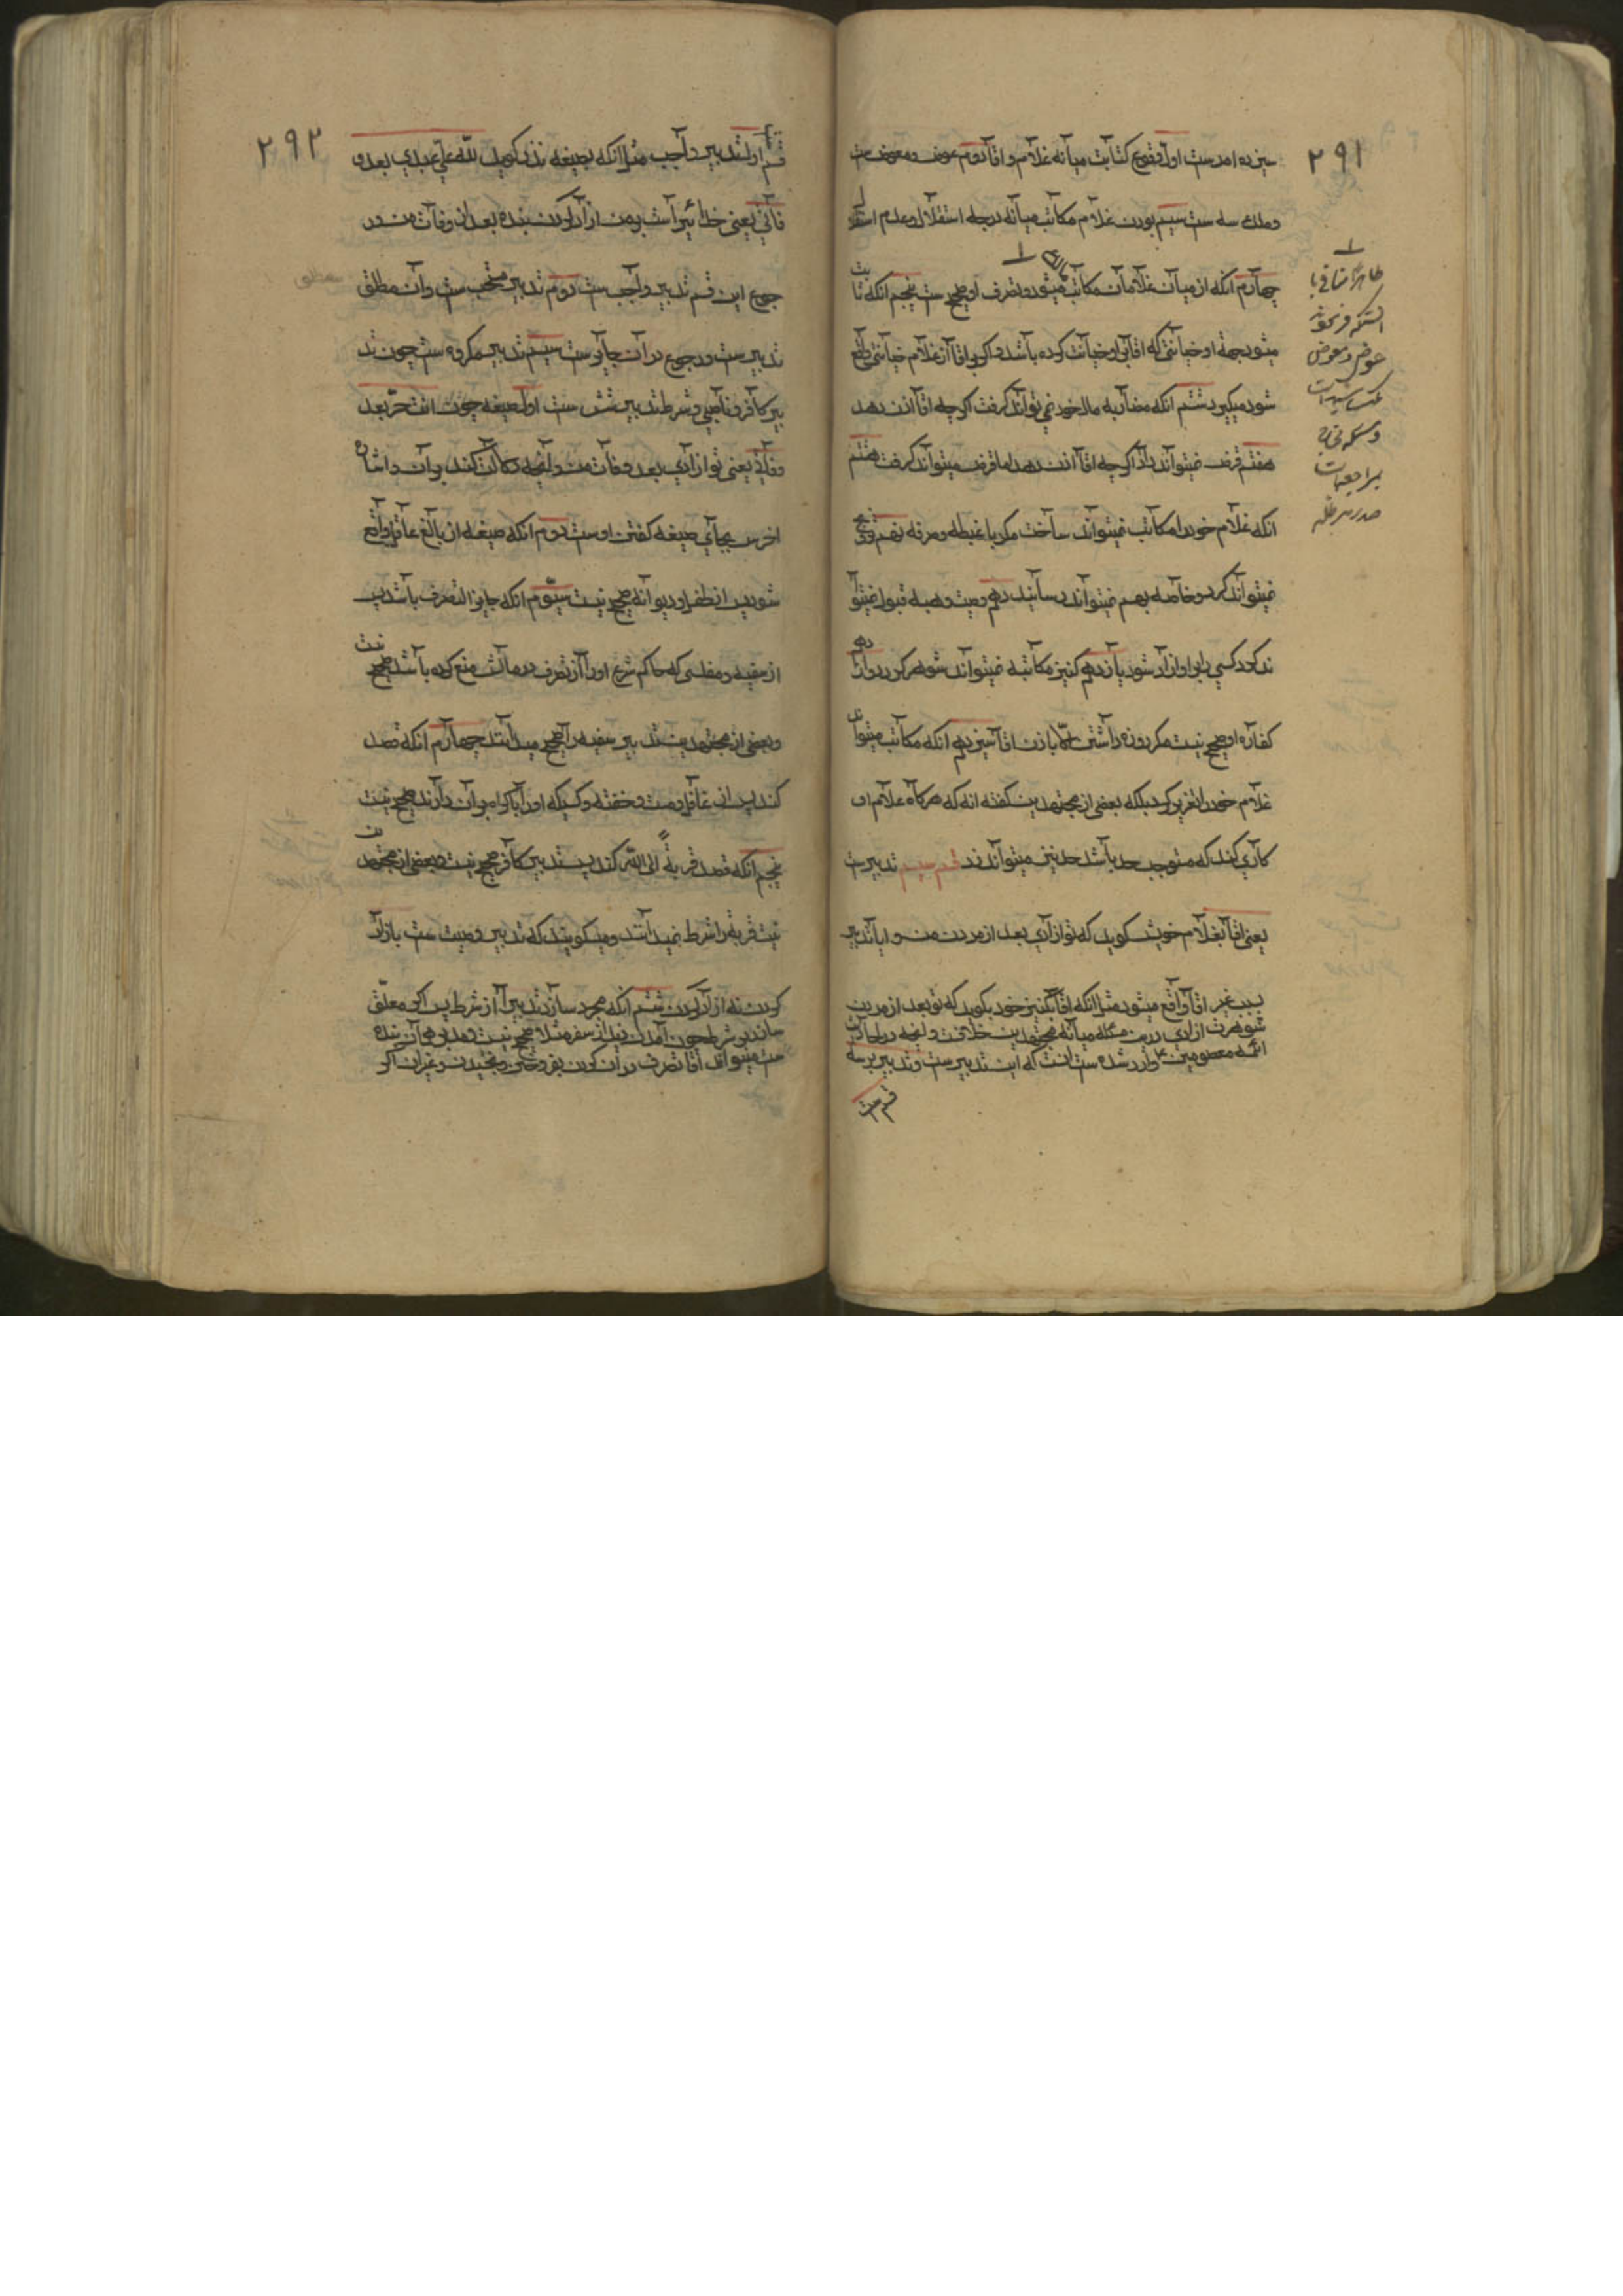 ۲۹۱
سیزده امرست اول وقوع کتابت میانه غلام و اقا دوم عوض و معوض ست
و ملک سه ست سیم بودن غلام مکاتب میانه درجه استقلال و عدم استقلال
چهارم انکه از میان غلامان مکاتب میشود و تصرف او صحیح ست پنجم انکه ثابت
میشود جهة او خیانتی که اقا باو خیانت کرده باشد و اکر با اقا از غلام خیانتی واقع
شود میکیرد ششم انکه مضاربه مال خود نمی تواند کرفت اکر چه اقا اذن دهد
هفتم قرض نمیتواند داد اکر چه اقا اذن دهد اما قرض میتواند کرفت هشتم
انکه غلام خود را مکاتب نمیتواند ساخت مکر با غبطه و صرفه نهم تزویج
نمیتواند کرد و خاصه بهم نمیتواند رسانید دهم وصیت و هبه قبول نمیتوا
ند کرد کسی را برو ازاد شود یازدهم کنیز مکاتبه نمیتواند شوهر کرد دوازدهم
کفاره او صحیح نیست مکر روزه داشتن الا باذن اقا سیزدهم انکه مکاتب میتواند
غلام خود را تعزیر کرد بلکه بعضی از مجتهدین کفته اند که هرکاه غلام او
کاری کند که مستوجب حد باشد حد نیز میتواند زد قسم سیم تدبیرست
یعنی اقا بغلام خویش کوید که تو ازادی بعد از مردن من و ایا تدبیر
بسبب غیر اقا واقع میشود مثل انکه اقا بکنیز خود بکوید که تو بعد از مردن
شوهرت ازادی درین مسئله میانه مجتهدین خلافست و انچه در احادیث
ائمه معصومین ع وارد شده ست انست که این تدبیر ست و تدبیر بر سه
قسم ست
ظاهرا
عوض و معوض
۲۹۲
قسم اول تدبیر واجب مثل انکه بصیغه نذر کوید لله علی عبدی بعد و
فاتی یعنی خدا ئیراست بر من ازاد کردن بنده بعد از وفات من و در
جوع این قسم تدبیر واجب ست دوم تدبیر مستحب ست و ان مطلق
تدبیرست و رجوع در ان جایز ست سیم تدبیر مکروه ست چون تد
بیر کافر و ناصبی و شرط تدبیر شش ست اول صیغه چون انت حر بعد
وفاتی یعنی تو ازادی بعد وفات من و انچه دلالت کند بر ان و اشاره
اخرس بجای صیغه کفتن او ست دوم انکه صیغه از بالغ عاقل واقع
شود پس از طفل و دیوانه صحیح نیست سیوم انکه جایز التصرف باشد پس
از سفیه و مفلسی که حاکم شرع او را از تصرف در مالش منع کرده باشد صحیح نیست
و بعضی از مجتهدین تدبیر سفیه را صحیح میدانند چهارم انکه قصد
کند پس از غافل و مست و خفته و کسیکه او را باکراه بر ان دارند صحیح نیست
پنجم انکه قصد قربة الی الله کند پس تدبیر کافر صحیح نیست و بعضی از مجتهدین
نیت قربة را شرط نمیدانند و میکویند که تدبیر وصیت ست بازاد
کردن نه ازاد کردن ششم انکه مجرد سازند تدبیر را از شرط پس اکر معلق
سازد بر شرط چون امدن زید از سفر مثلا صحیح نیست و مدبر همان بنده
ست میتواند اقا تصرف در ان کردن بفروختن و بخشیدن و غیر ان اکر